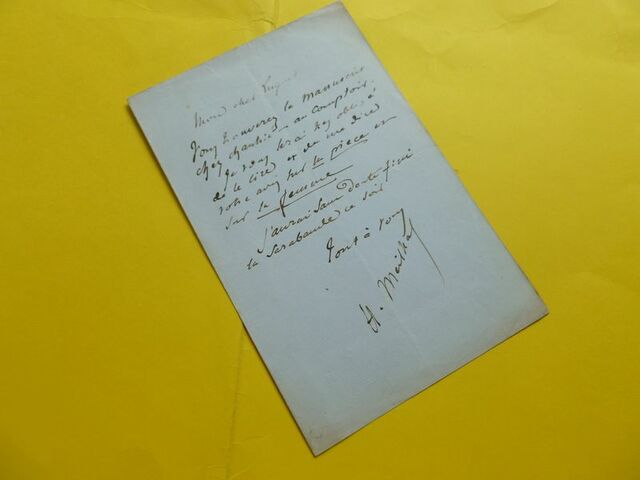 Mon cher
Vous trouverez le manuscrit
chez au comptoir.
Je vous serai très obligé
de le lire et de me dire
votre avis sur la pièce et
sur la femme
J'aurai sans doute fini
la Sarabande ce soir
Tout à vous
H. Meilhac